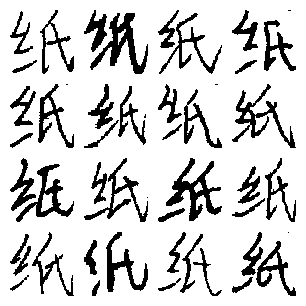 纸纸纸纸
纸纸纸纸
纸纸纸纸
纸纸纸纸